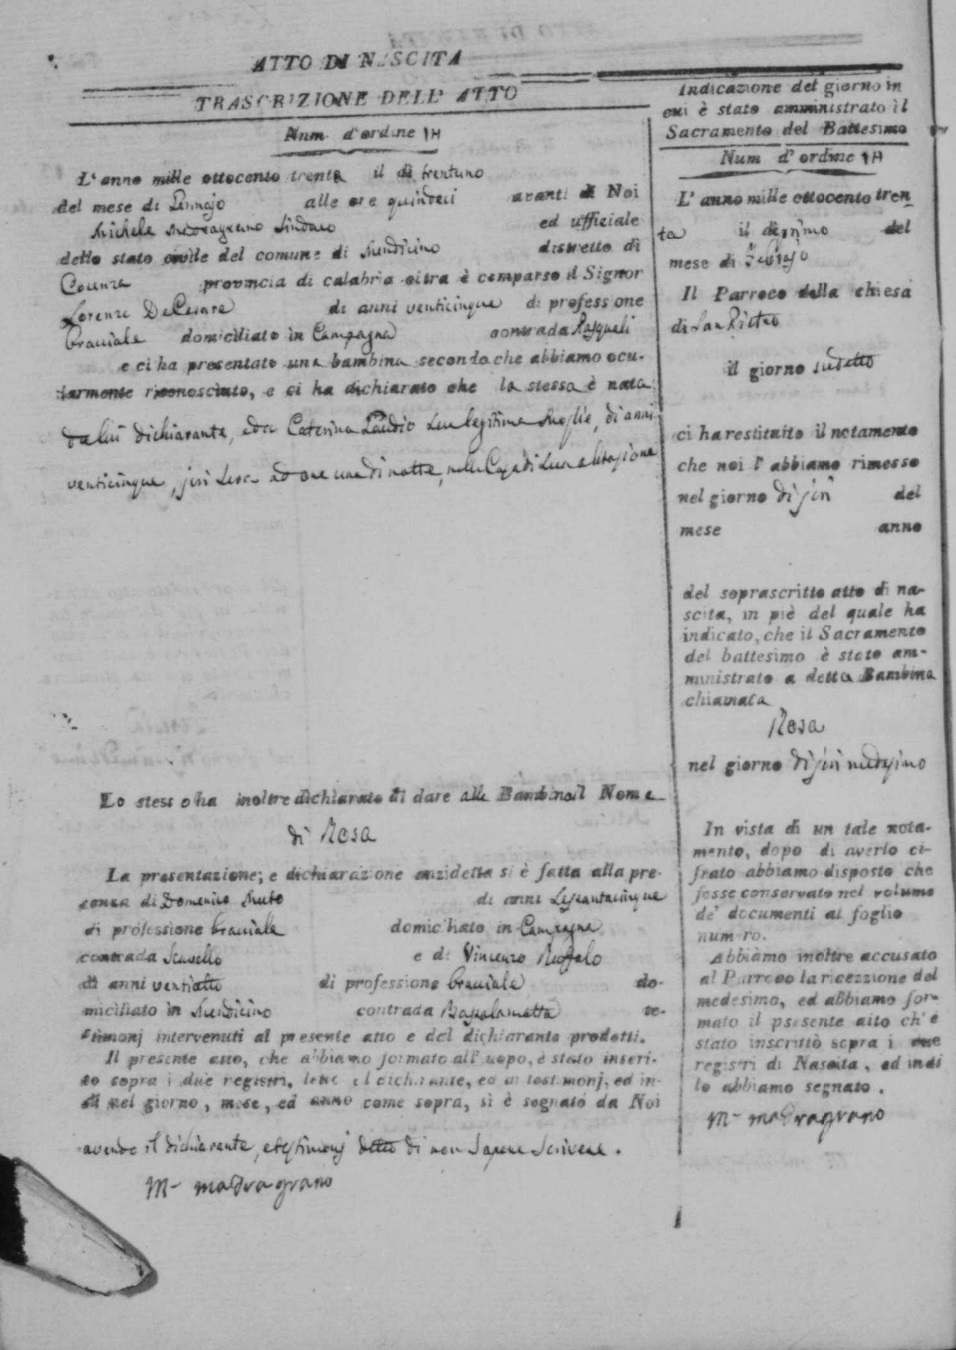 ATTO DI NASCITA
TRASCRIZIONE DELL' ATTO
Num. d'ordine 14
L'anno mille ottocento trenta il dì trentuno
del mese di alle ore quindeci avanti di Noi
Michele Sindaco ed uffiziale
dello stato civile del comune di Mendicino distretto di
Cosenza provincia di calabria citra è comparso il Signor
Lorenzo De Cesare di anni venticinque di professione
bracciale domiciliato in Campagna contrada Pasquali
e ci ha presentato una bambina secondo che abbiamo ocu-
larmente riconosciuto, e ci ha dichiarato che la stessa è nata
da lui dichiarante, e da Caterina sua legittima Moglie, di anni
venticinque, jeri sera ad ore una di notte, nella Casa di sua abitazione
Lo stesso ha inoltre dichiarato di dare alla Bambina il Nome
di Rosa
La presentazione, e dichiarazione anzidetta si è fatta alla pre-
senza di Domenico Muto di anni sessantacinque
di professione bracciale domiciliato in Campagna
contrada Scavello e di Vincenzo Ruffalo
di anni ventiotto di professione bracciale do-
miciliato in Mendicino contrada te-
stimonj intervenuti al presente atto e del dichiarante prodotti.
Il presente atto, che abbiamo formato all' uopo, è stato inseri-
to sopra i due registri, letto al dichirante, ed ai testimonj, ed in-
di nel giorno, mese, ed anno come sopra, si è segnato da Noi
avendo il dichiarante, e testimonj detto di non sapere scrivere.
M- madragrano
Indicazione del giorno in
cui è stato amministrato il
Sacramento del Battesimo
Num d'ordine 14
L' anno mille ottocento tren
ta il dì primo del
mese di
Il Parroco della chiesa
di San Pietro
il giorno sudetto
ci ha restituito il notamento
che noi l' abbiamo rimesso
nel giorno di jeri del
mese anno
del soprascritto atto di na-
scita, in piè del quale ha
indicato, che il Sacramento
del battesimo è stato am-
ministrato a detta Bambina
chiamata
Rosa
nel giorno di jeri medesimo
In vista di un tale nota-
mento, dopo di averlo ci-
frato abbiamo disposto che
fesse conservato nel volume
de' documenti al foglio
numero.
Abbiamo inoltre accusato
al Parroco la ricezzione del
medesimo, ed abbiamo for-
mato il psesente atto ch' è
stato inscritto sopra i due
registri di Nascita, ed indi
lo abbiamo segnato.
M- madragrano